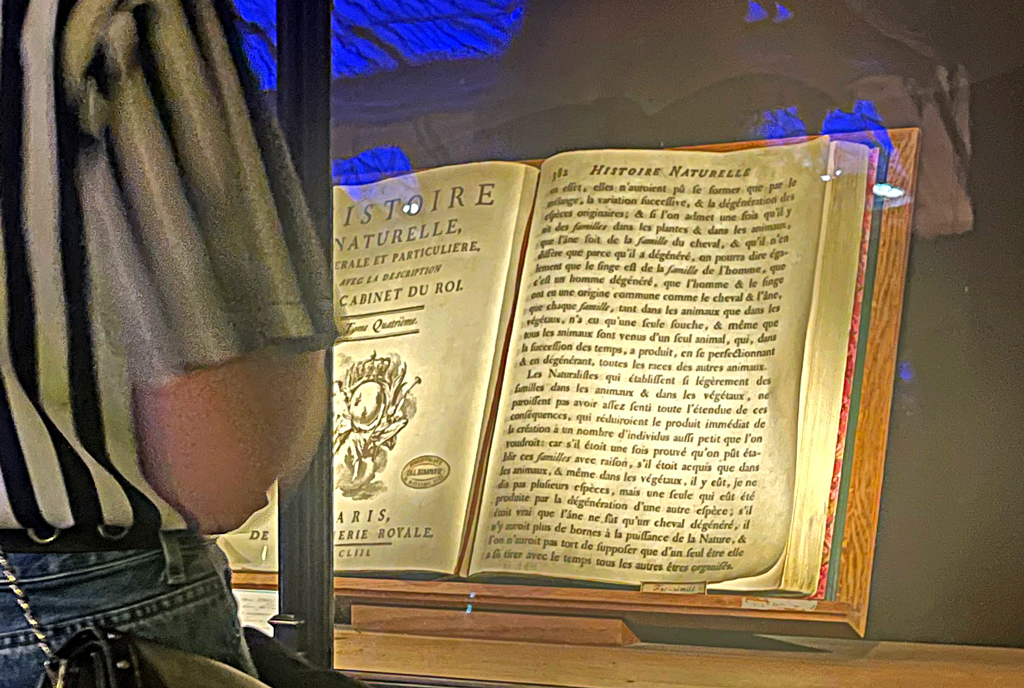 ISTOIRE
NATURELLE,
ERALE ET PARTICULIERE,
AVEC LA DESCRIPTION
CABINET DU ROI.
Tome Quatrième.
ARIS,
DE
NERIE ROYALE.
CLIII.
382 HISTOIRE NATURELLE
en effet, elles n'auroient pû se former que par le
mélange, la variation successive, & la dégénération des
espèces originaires; & si l'on admet une fois qu'il y
ait des familles dans les plantes & dans les animaux,
que l'âne soit de la famille du cheval, & qu'il n'en
diffère que parce qu'il a dégénéré, on pourra dire éga-
lement que le singe est de la famille de l'homme, que
c'est un homme dégénéré, que l'homme & le singe
ont eu une origine commune comme le cheval & l'âne,
que chaque famille, tant dans les animaux que dans les
végétaux, n'a eu qu'une seule souche, & même que
tous les animaux sont venus d'un seul animal, qui, dans
la succession des temps, a produit, en se perfectionnant
& en dégénérant, toutes les races des autres animaux.
Les Naturalistes qui établissent si légèrement des
familles dans les animaux & dans les végétaux, ne
paroissent pas avoir assez senti toute l'étendue de ces
conséquences, qui réduiroient le produit immédiat de
la création à un nombre d'individus aussi petit que l'on
voudroit: car s'il étoit une fois prouvé qu'on pût éta-
blir ces familles avec raison, s'il étoit acquis que dans
les animaux, & même dans les végétaux, il y eût, je ne
dis pas plusieurs espèces, mais une seule qui eût été
produite par la dégénération d'une autre espèce; s'il
étoit vrai que l'âne ne fût qu'un cheval dégénéré, il
n'y auroit plus de bornes à la puissance de la Nature, &
l'on n'auroit pas tort de supposer que d'un seul être elle
a sû tirer avec le temps tous les autres êtres organisés.
Fac-similé